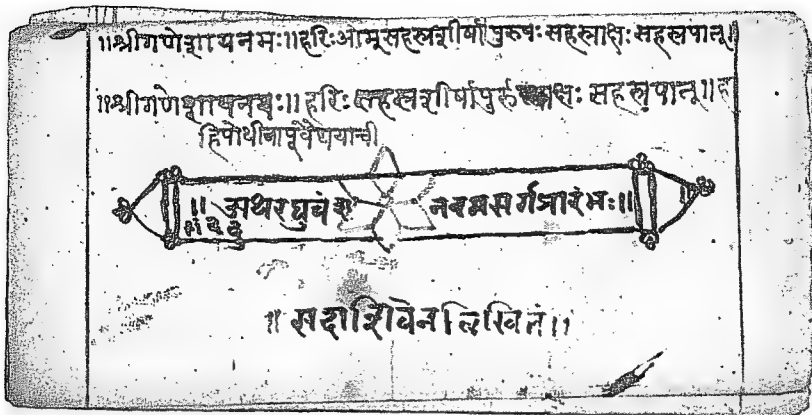 ॥श्रीगणेशायनमः॥हरिःओम्सहस्रशीर्षापुरुषःसहस्राक्षःसहस्रपात्॥
॥श्रीगणेशायनमः॥हरिः सहस्रशीर्षापुरुषः सहस्रपात्॥ह
हिपोथीबापू
॥अथरघुवंश नवमसर्गप्रारंभः॥
॥सदाशिवेनलिखितं॥